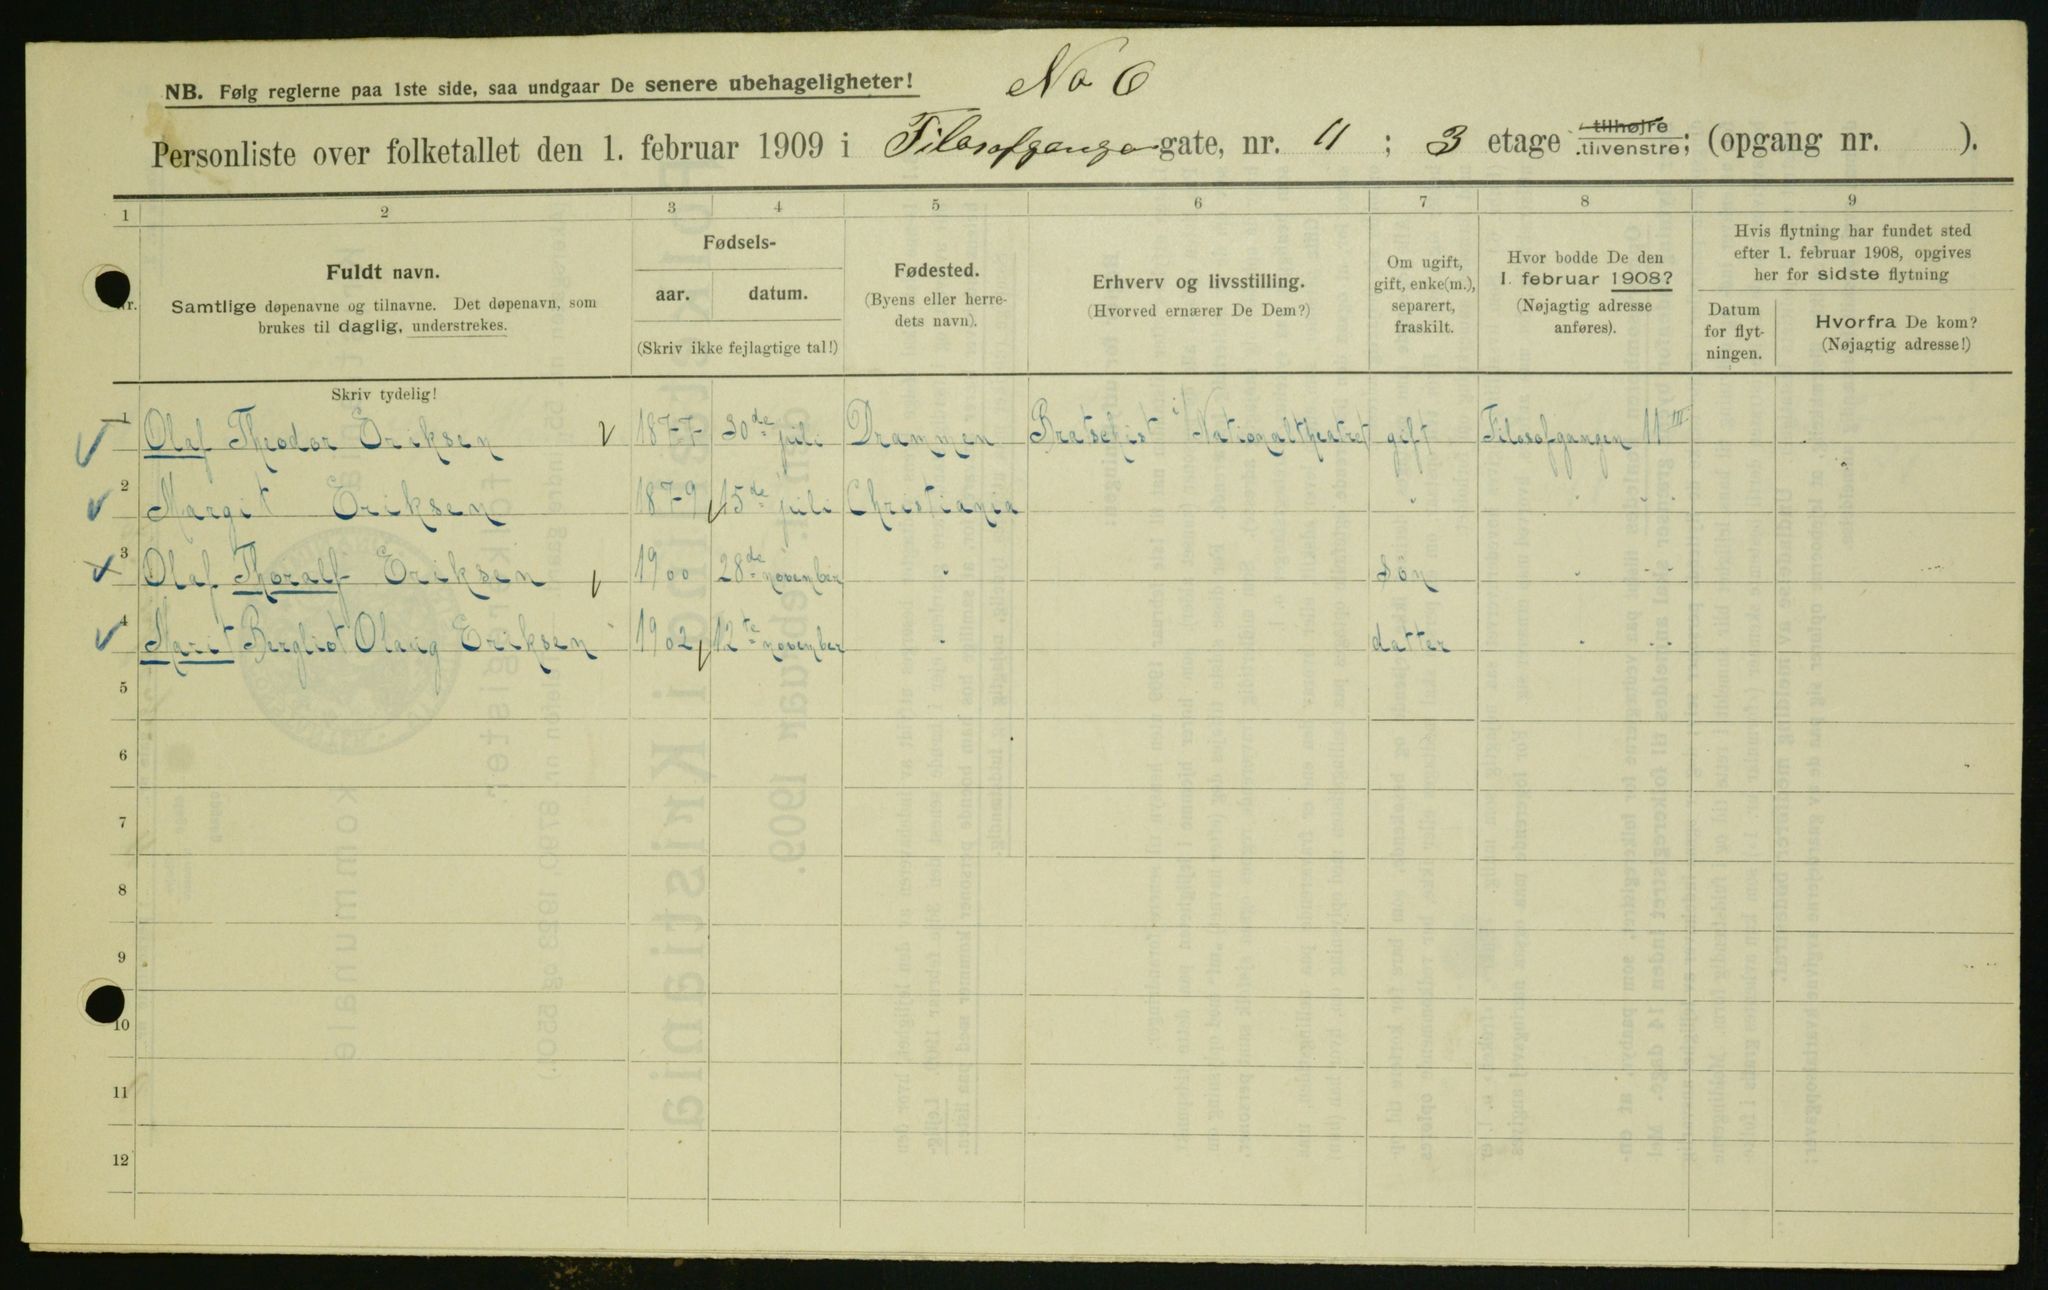 No 6
NB. Følg reglerne paa 1ste side, saa undgaar De senere ubehageligheter!
Personliste over folketallet den 1. februar 1909 i Filosofganga gate, nr. 11 ; 3 etage tilhøjre tilvenstre; (opgang nr. ).
1 2 3 4 5 6 7 8 9
nr.
Fuldt navn.
Samtlige døpenavne og tilnavne. Det døpenavn, som
brukes til daglig, understrekes.
Skriv tydelig!
Fødsels-
aar. datum.
(Skriv ikke fejlagtige tal!)
Fødested.
(Byens eller herre-
dets navn).
Erhverv og livsstilling.
(Hvorved ernærer De Dem?)
Om ugift,
gift, enke(m.),
separert,
fraskilt.
Hvor bodde De den
1. februar 1908?
(Nøjagtig adresse
anføres).
Hvis flytning har fundet sted
efter 1. februar 1908, opgives
her for sidste flytning
Datum
for flyt-
ningen.
Hvorfra De kom?
(Nøjagtig adresse!)
1 Olaf Theodor Eriksen 1877 30de juli Drammen Bratschist i Nationaltheatret gift Filosofgangen 11 III
2 Margit Eriksen 1879 15de juli Christiania " " " "
3 Olaf Thoralf Eriksen 1900 28de november " søn " " "
4 Marit Bergliot Olaug Eriksen 1902 12te november " datter " " "
5
6
7
8
9
10
11
12